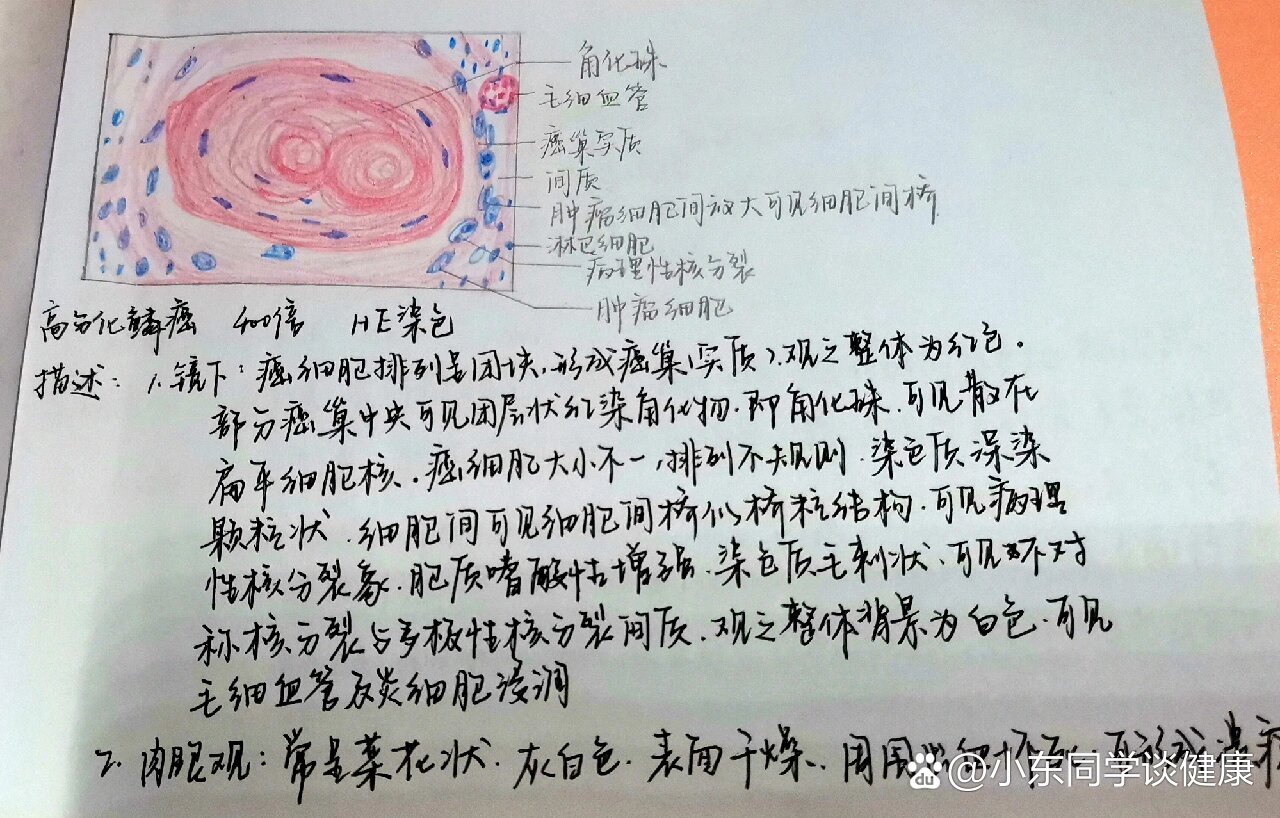 角化珠
毛细血管
癌巢实质
间质
肿瘤细胞间放大可见细胞间桥
淋巴细胞
病理性核分裂
肿瘤细胞
高分化鳞癌 400倍 HE染色
描述：1. 镜下：癌细胞排列呈团块，形成癌巢（实质），观之整体为红色。
部分癌巢中央可见团层状红染角化物，即角化珠，可见散在
扁平细胞核。癌细胞大小不一，排列不规则，染色质深染
颗粒状，细胞间可见细胞间桥似桥粒结构，可见病理
性核分裂象，胞质嗜酸性增强，染色质毛刺状，可见不对
称核分裂与多极性核分裂间质，观之整体背景为白色，可见
毛细血管及炎细胞浸润
2. 肉眼观：常呈菜花状，灰白色，表面干燥，
@小东同学谈健康